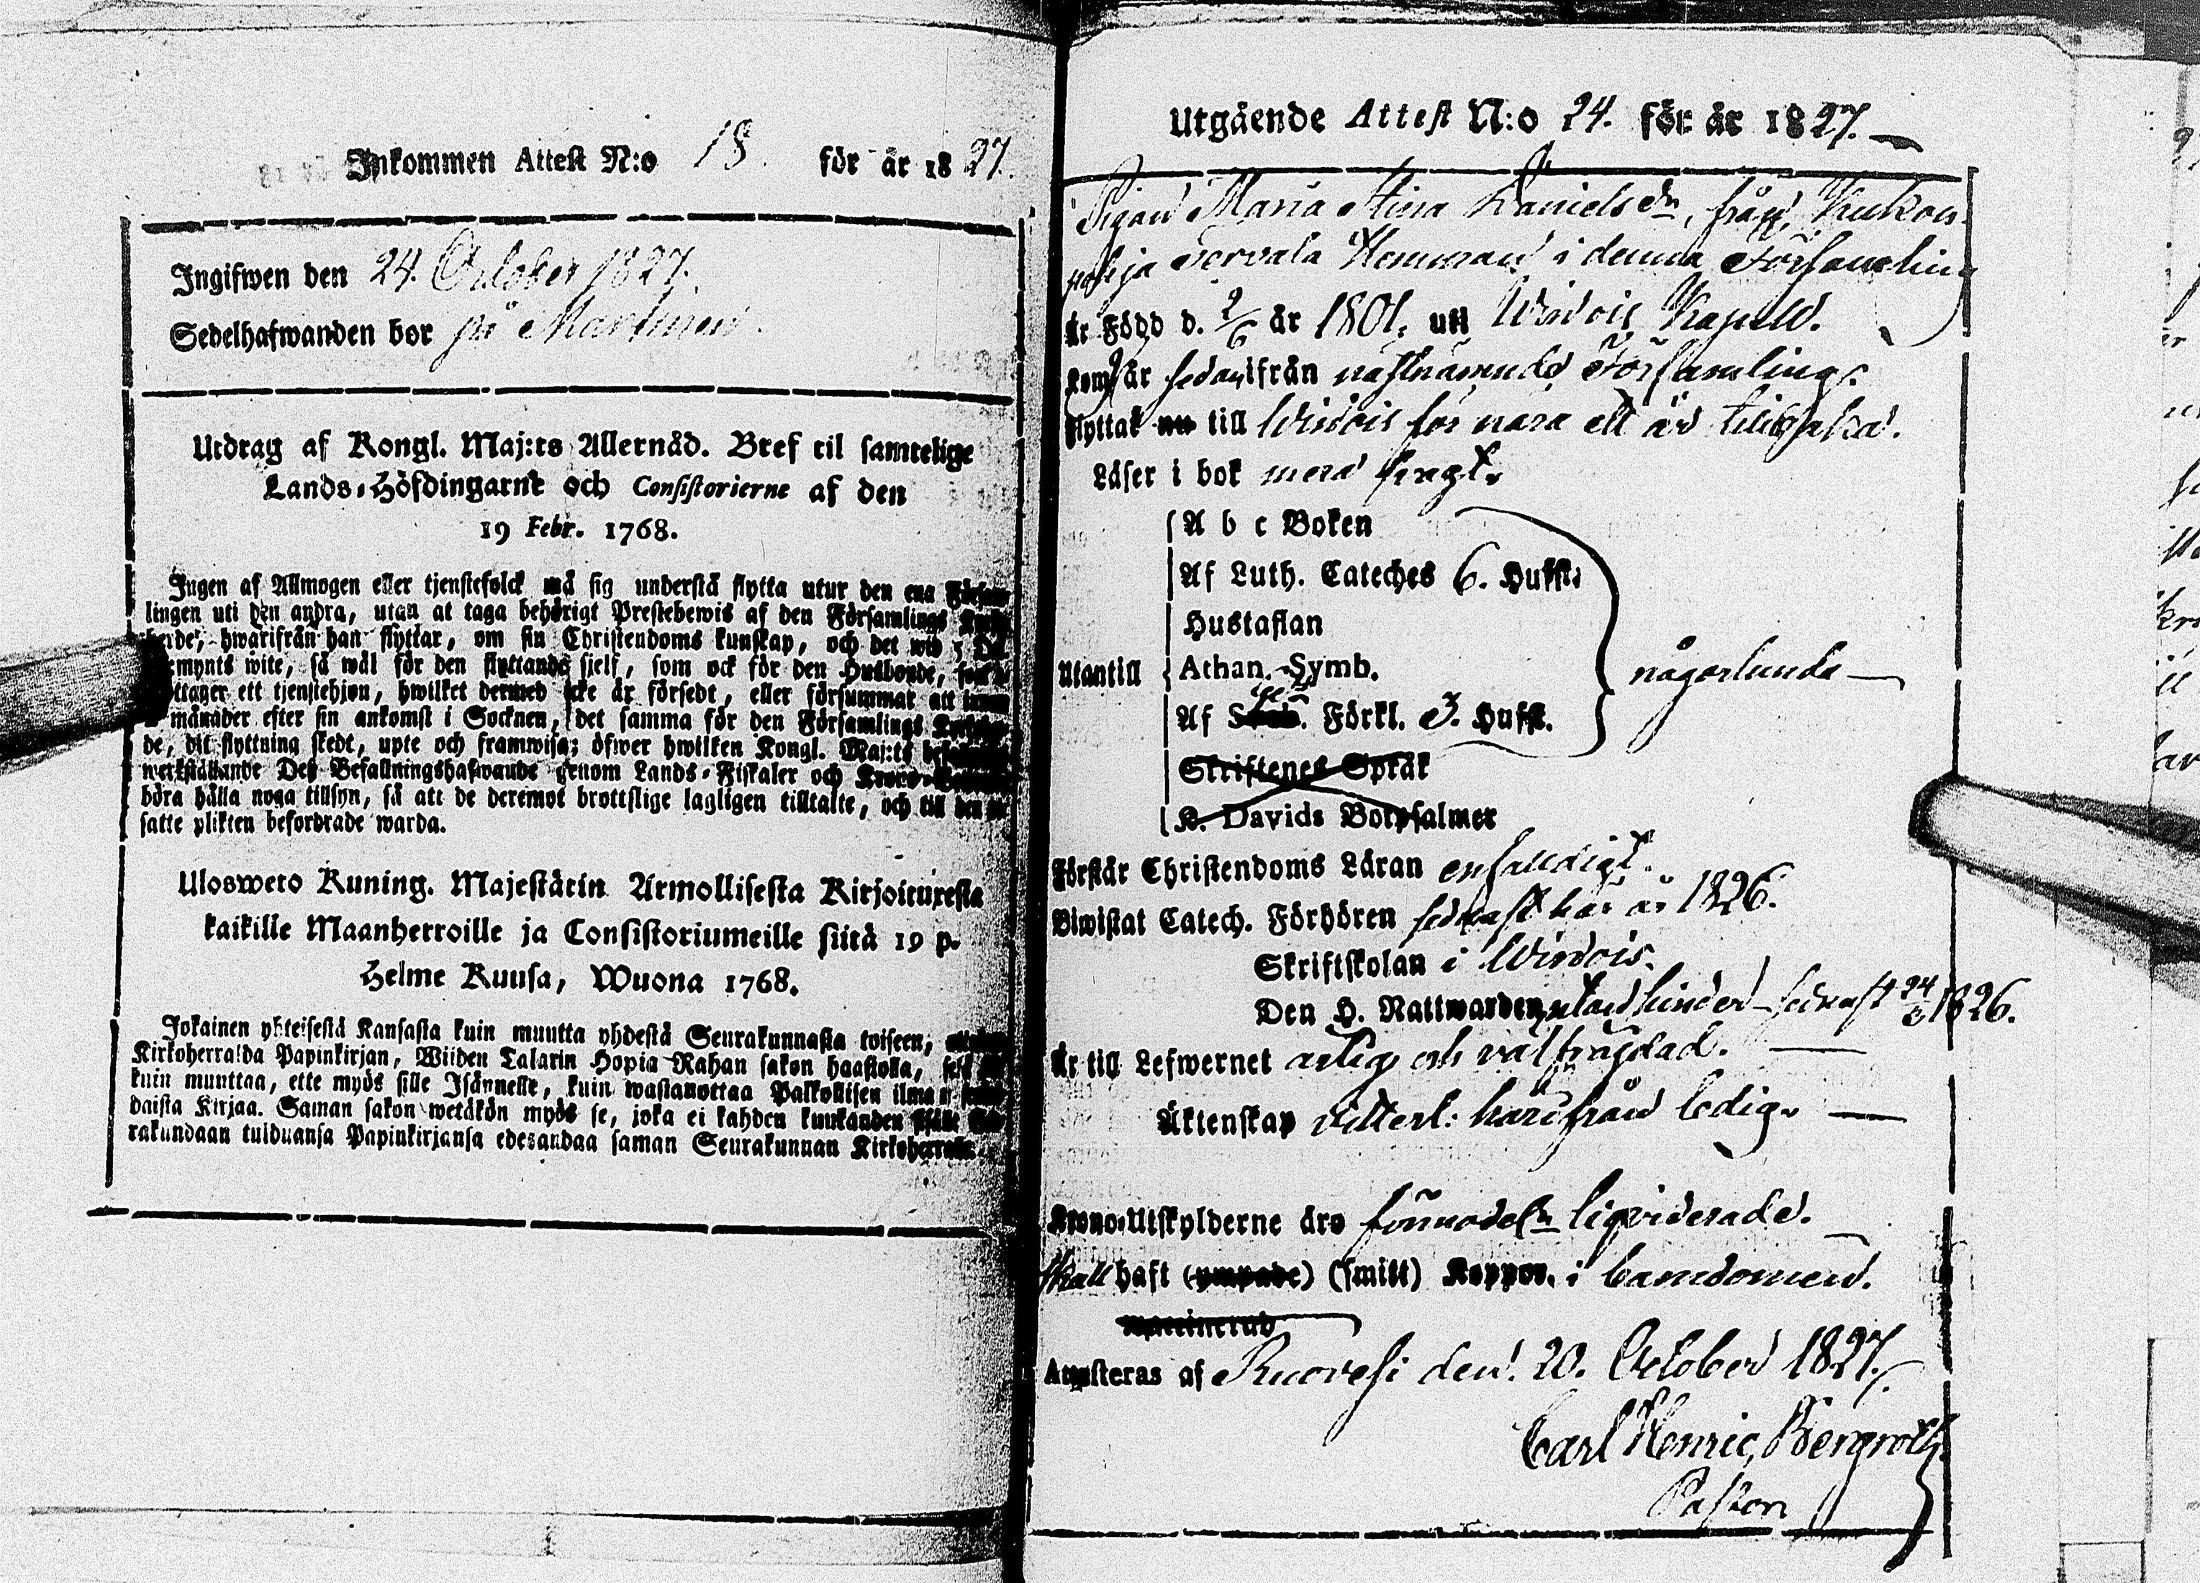 Inkommen Attest N:o 18. för år 1827.
Ingifwen den 24. October 1827.
Sedelhafwanden bor på Martinen.
Utdrag af Kongl. Maj:ts Allernåd. Bref til samtelige
Lands-Höfdingarne och Consistorierne af den
19 Febr. 1768.
Ingen af Allmogen eller tjenstefolck må sig understå flytta utur den ena
lingen uti den andra, utan at taga behörigt Prestebewis af den Församlings
hwarifrån han flyttar, om sin Christendoms kunskap, och det wid
wite, så wäl för den flyttande sjelf, som ock för den Husbonde,
ett tjenstehjon, hwilket dermed icke är försedt, eller försummar att
månader efter sin ankomst i Socknen, det samma för den Församlings
de, dit flyttning skedt, upte och framwisa; öfwer hwilken Kongl. Maj:ts
werkställande Des Befallningshafwande genom Lands-Fiskaler och
böra hålla noga tillsyn, så att de deremot brottslige lagligen tilltalte, och till den
satte plikten befordrade warda.
Ulosweto Kuning. Majestätin Armollisesta Kirjoituxesta
kaikille Maanherroille ja Consistoriumeille siitä 19 p.
Helme Kuusa, Wuona 1768.
Jokainen yhteisestä Kansasta kuin muutta yhdestä Seurakunnasta toiseen,
Kirkoherralda Papinkirjan, Wiiden Talarin Hopia Rahan sakon haastolla,
kuin muuttaa, ette myös sille Isännelle, kuin wastanottaa Palkollisen ilman
daista Kirjaa. Saman sakon wetäkön myös se, joka ei kahden kuukauden
rakundaan tulduansa Papinkirjansa edesandaa saman Seurakunnan
Utgående Attest N:o 24. för år 1827.
Pigan Maria Stina Danielsdr, från
Torvala Hemman i denna Församling
är Född d. 2/6 år 1801, uti Windois Kapell.
år sedan ifrån nästnämnde Församling.
flyttat nu till Windois för nära ett år tillbaka.
Läser i bok med fragt.
Utantill
A b c Boken
Af Luth. Cateches 6. Hufst.
Hustaflan
Athan. Symb.
någorlunda
Af Förkl. 3. Hufst.
Skriftenes Språk
K. Davids Botpsalmer
Förstår Christendoms Läran enfaldigt.
Biwistat Catech. Förhören sednast här år 1826.
Skriftskolan i Windois.
Den H. Nattwarden utan hinder sednast 24/3 1826.
Är till Lefwernet ärlig och välfrägdad.
Äktenskap vitterl: härifrån ledig.
Krono-Utskylderne äro förmodeln liqviderade.
skall haft (ympade) (smitt) Koppor. i barndomen.
Attesteras af Ruovesi den 20. October 1827.
Carl Henric Bergroth
Pastor